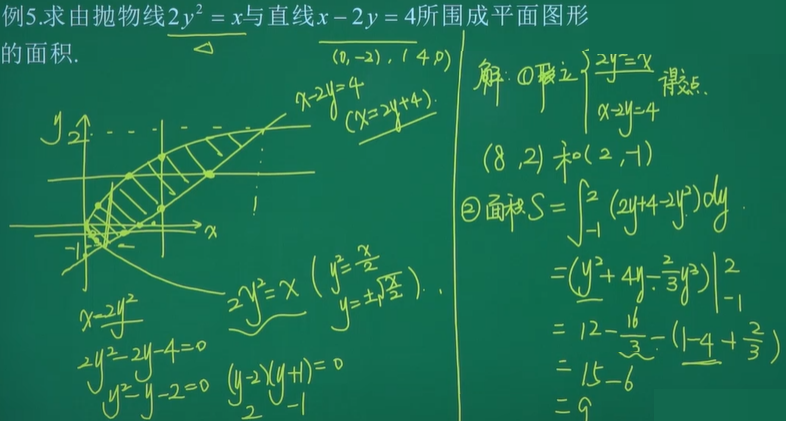 例5.求由抛物线2y² = x与直线x − 2y = 4所围成平面图形
的面积.
(0,-2), (4,0)
x-2y=4
(x=2y+4).
y
2
x
-1
2y²=x (y²=x/2
y=±√(x/2)).
x=2y²
2y²-2y-4=0
y²-y-2=0 (y-2)(y+1)=0
2 -1
解: ①联立 { 2y²=x 得交点.
x-2y=4
(8,2)和(2,-1)
②面积S=∫₋₁² (2y+4-2y²)dy.
=(y²+4y-2/3y³)|₋₁²
=12-16/3-(1-4+2/3)
=15-6
=9